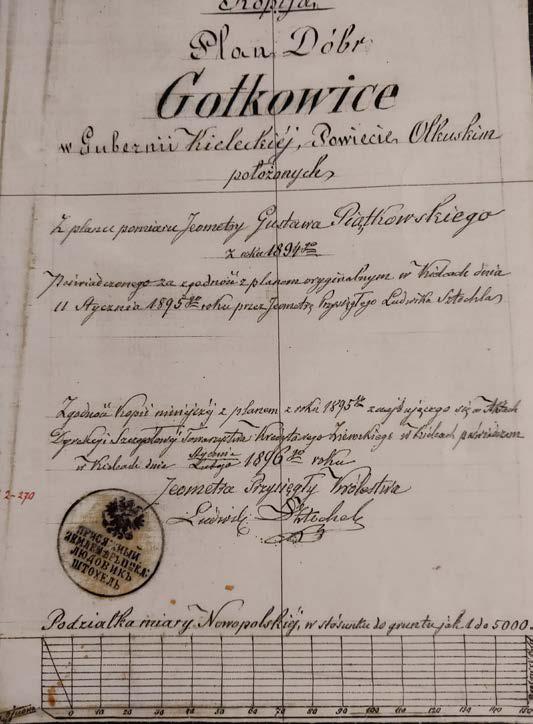 Kopija,
Plan Dóbr
Gołkowice
w Gubernii Kieleckiéj, Powiecie Olkuskim
położonych,
Z planu pomiaru Jeometry Gustawa Piątkowskiego
z roku 1894go
Poświadczonego za zgodność z planem oryginalnym w Kielcach dnia
11 Stycznia 1895go roku przez Jeometrę Przysięgłego Ludwika Sztochla,
Zgodność kopii niniejszéj z planem z roku 1895go znajdującego się w Aktach
Dyrekcji Szczegółowéj Towarzystwa Kredytowego Ziemskiego w Kielcach poświadczam
w Kielcach dnia Stycznia/Lutego 1896go roku
Jeometra Przysięgły Królestwa
Ludwik Sztochel
2-270
ПРИСЯЖНЫЙ
ЛЮДОВИКЪ
ШТОХЕЛЬ
Podziałka miary Nowopolskiéj, w stósunku do gruntu jak 1 do 5000.
0 10 20 30 40 50 60 70 80 90 100 110 120 130 140